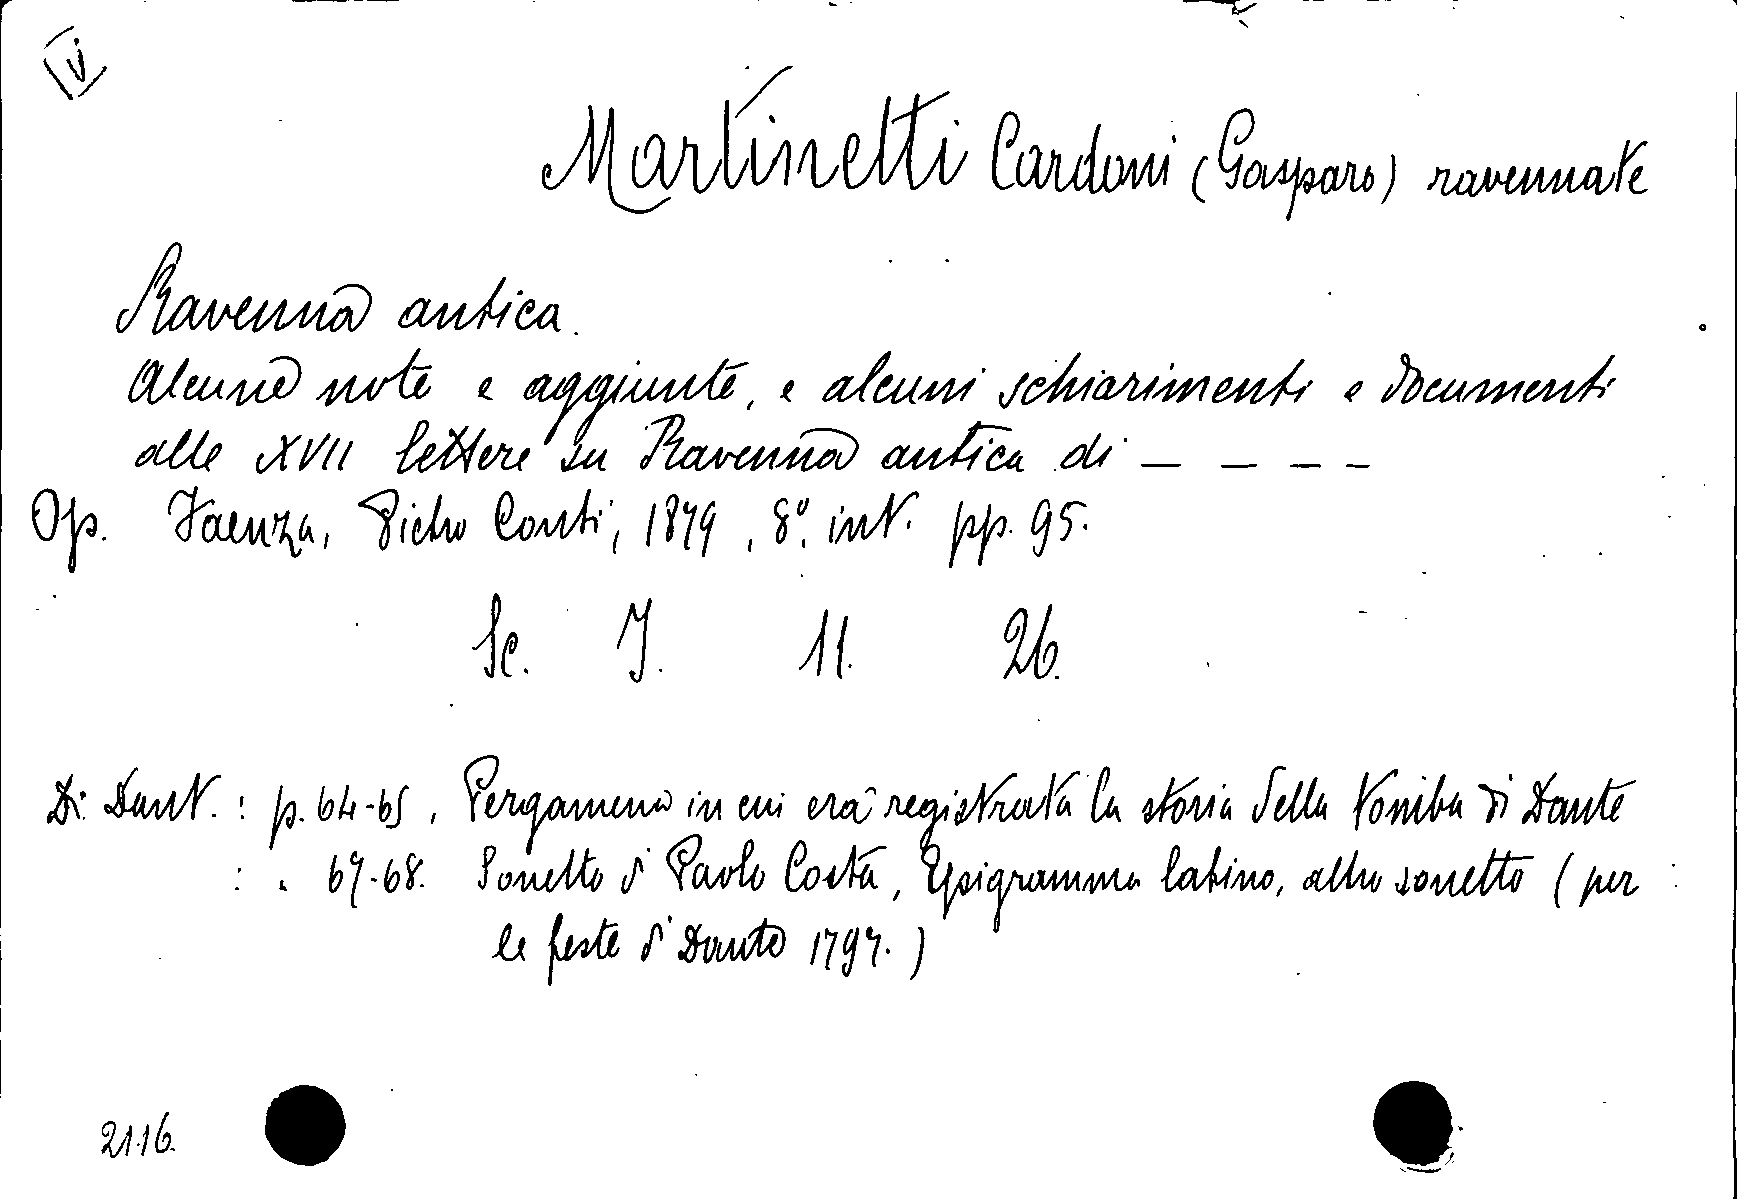 Vi
Martinetti Cardoni (Gasparo) ravennate
Ravenna antica.
Alcune note e aggiunte, e alcuni schiarimenti e documenti
alle XVII lettere su Ravenna antica di _ _ _ _
Op. Faenza, Pietro Conti, 1879, 8°, int. pp. 95.
Sc. I. 11. 26.
Di Dant. : p. 64-65, Pergamena in cui era registrata la storia della tomba di Dante
: " 67-68. Sonetto di Paolo Costa, Epigramma latino, altro sonetto (per
le feste di Dante 1797.)
2116.